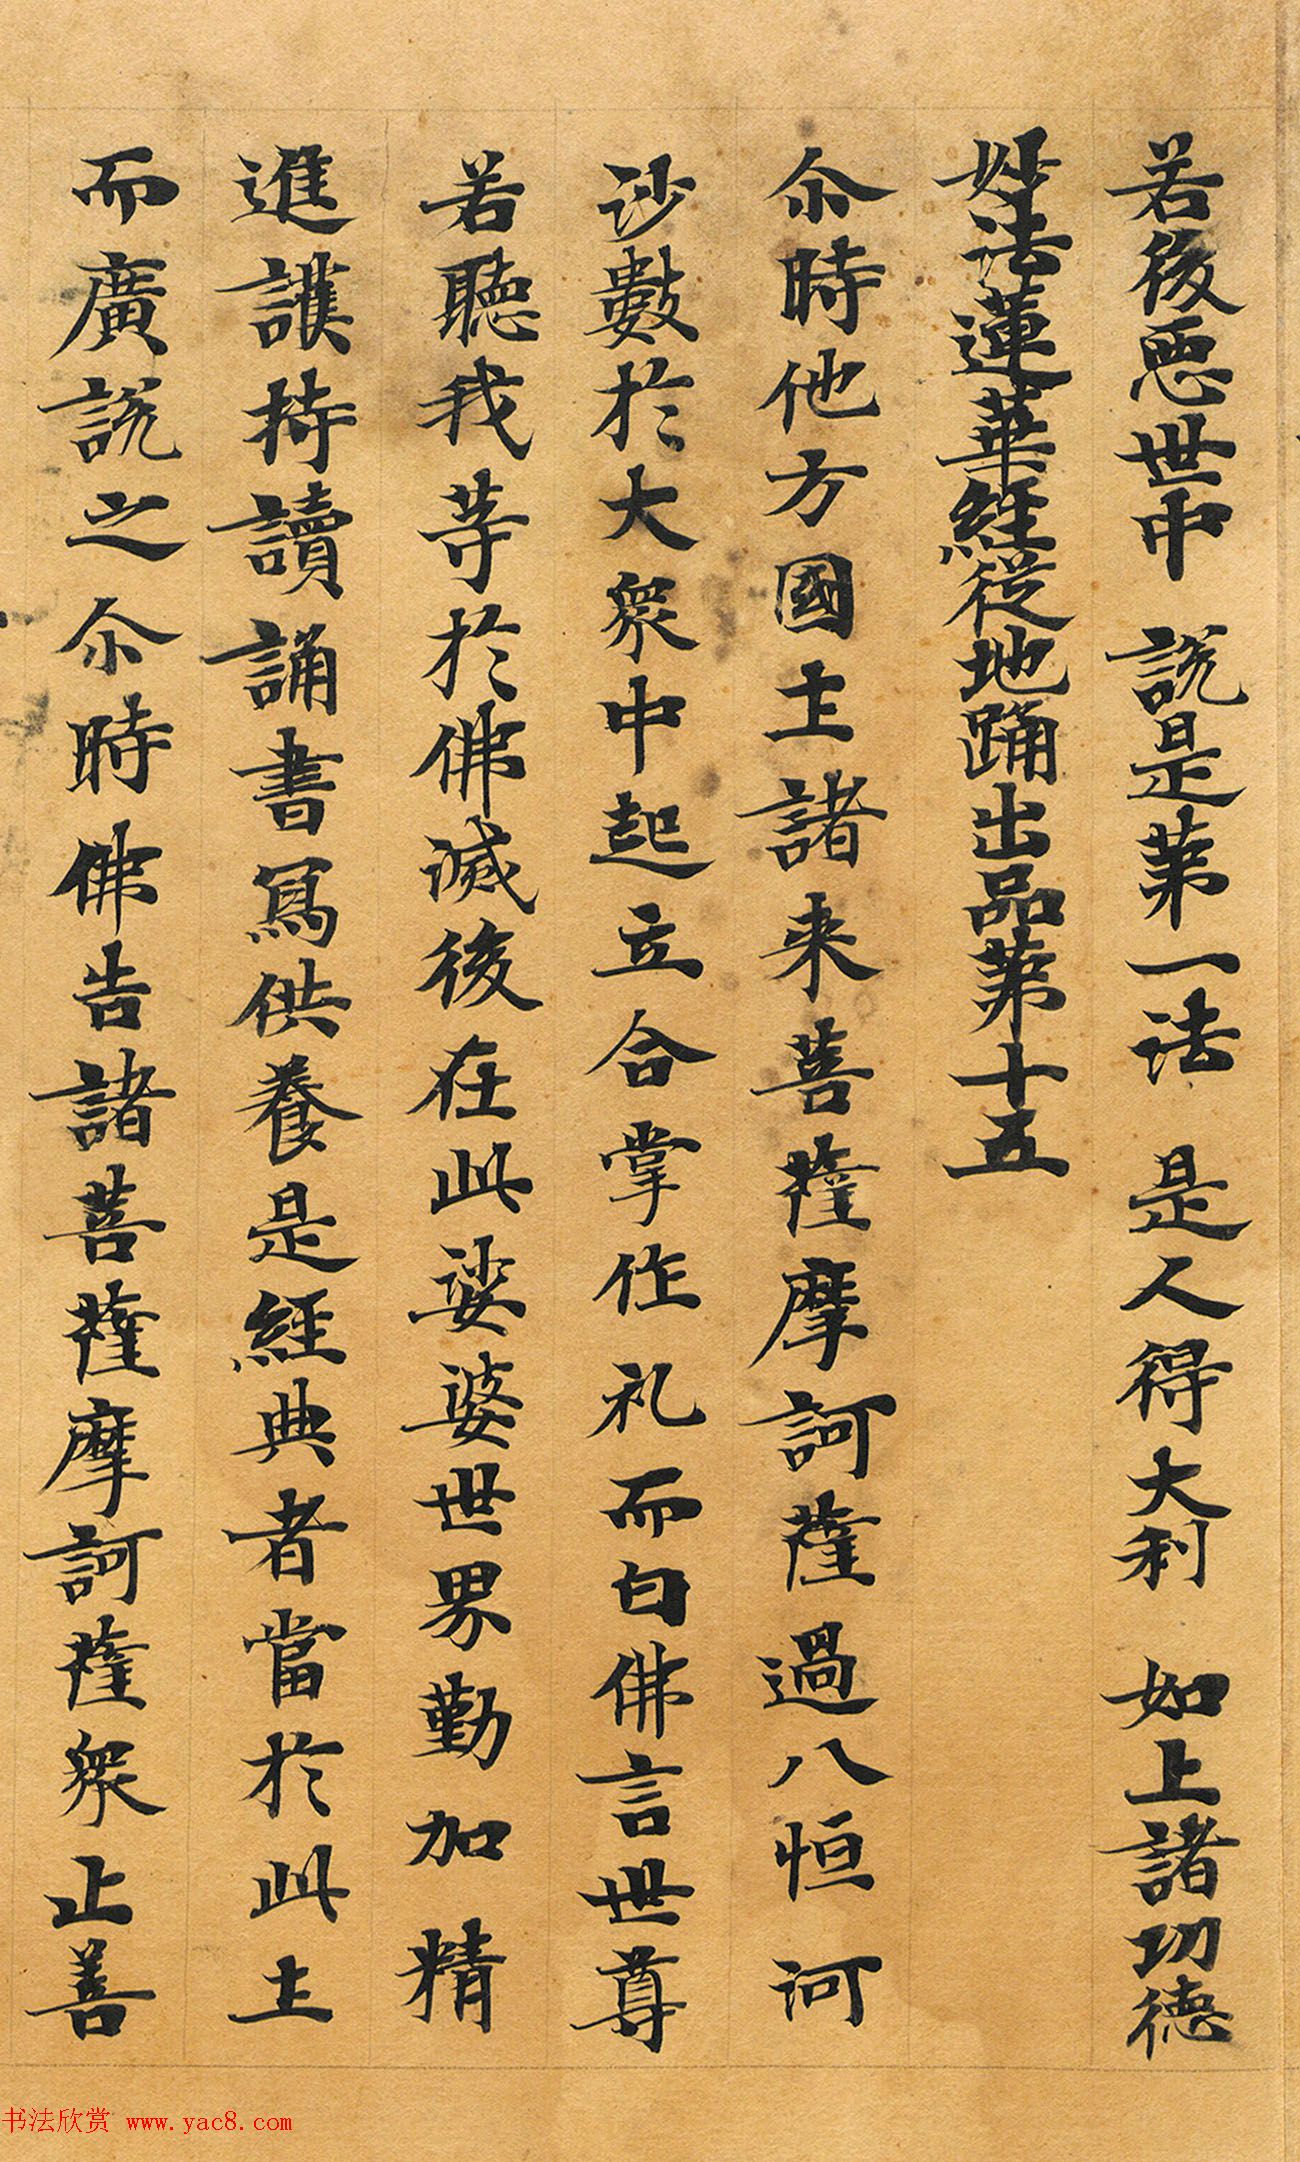 若後惡世中 說是第一法 是人得大利 如上諸功德
妙法蓮華經從地踊出品第十五
尒時他方國土諸来菩薩摩訶薩過八恒河
沙數於大衆中起立合掌作礼而白佛言世尊
若聽我等於佛滅後在此娑婆世界勤加精
進護持讀誦書寫供養是經典者當於此土
而廣說之尒時佛告諸菩薩摩訶薩衆止善
书法欣赏 www.yac8.com